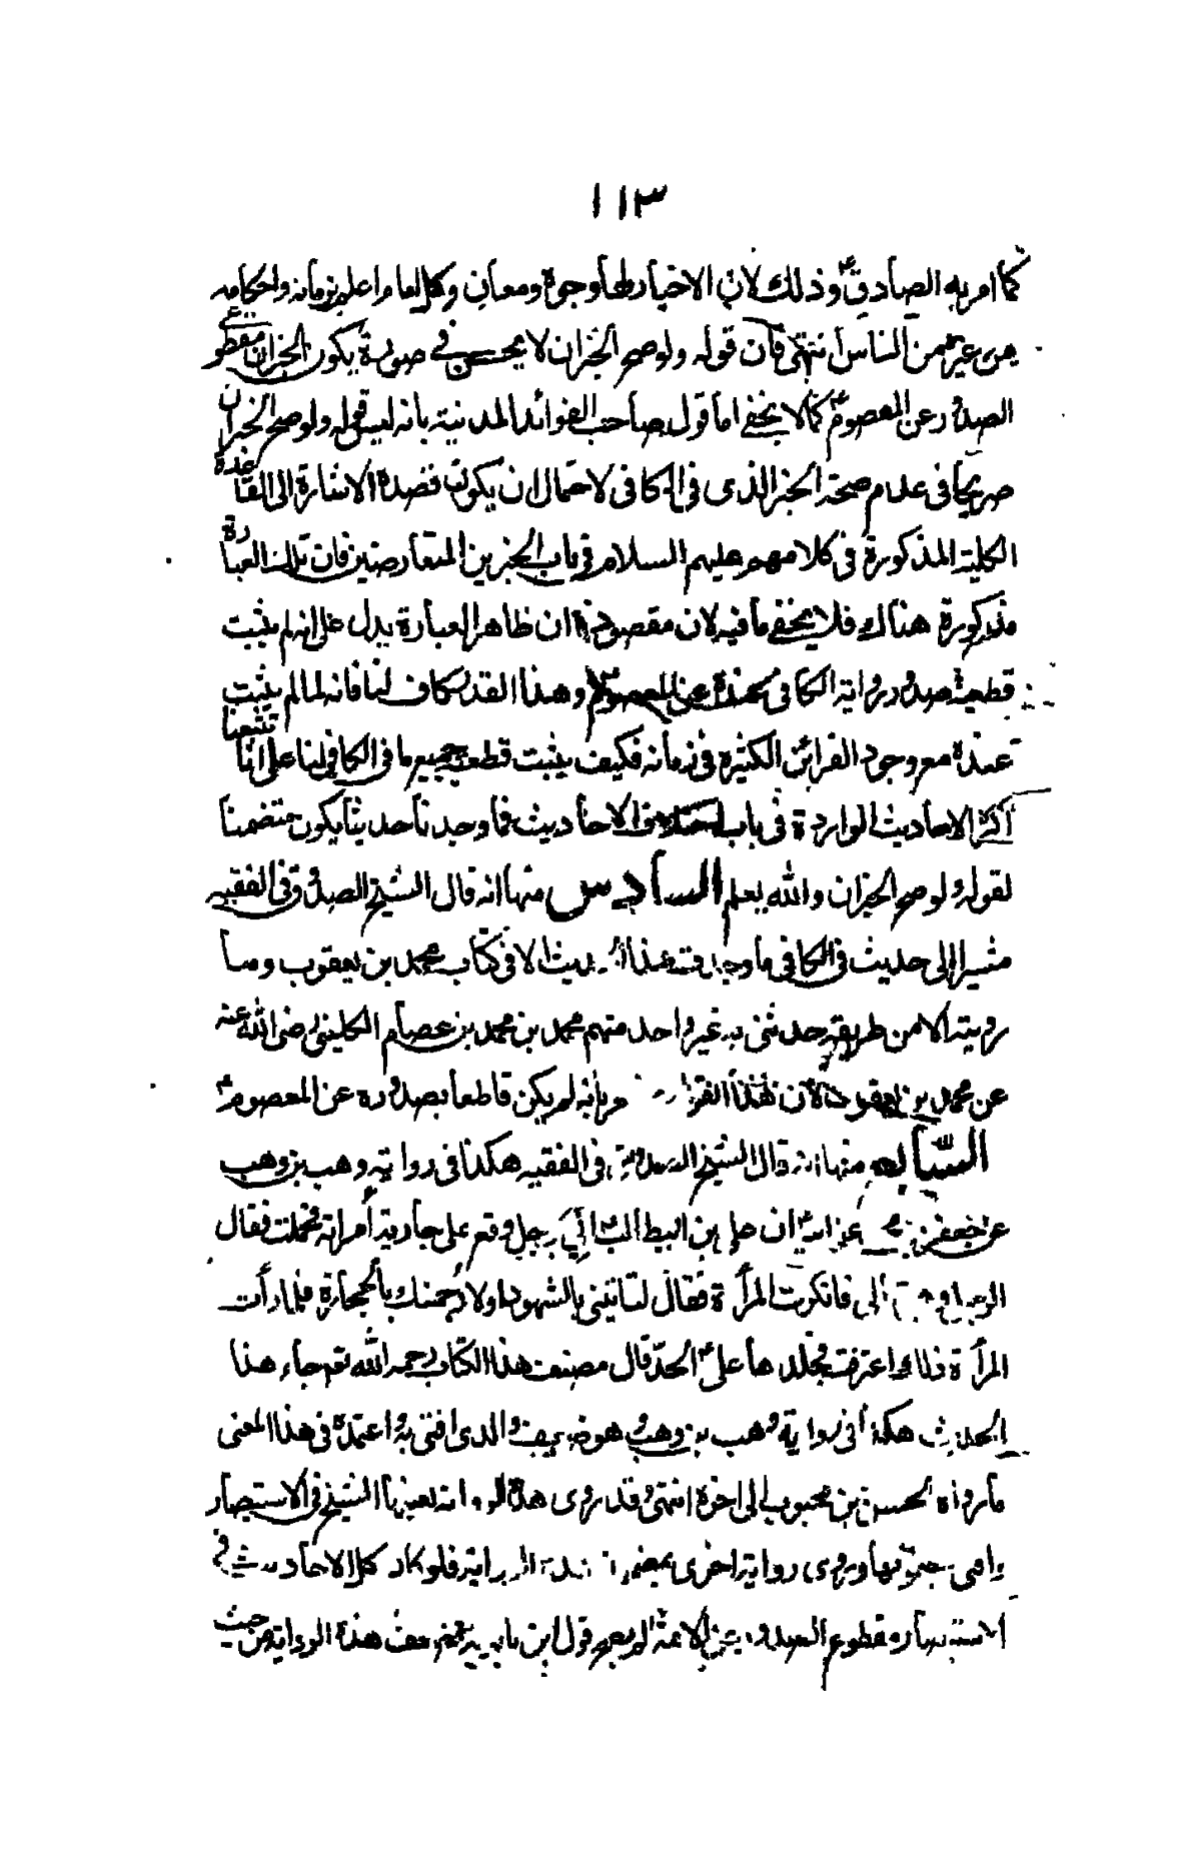 ١١٣
كما امر به الصادقؑ وذلك لان الاخبار لها وجوه ومعان وكل امام اعلم بزمانه واحكامه
من غيره من الناس انتهى فان قوله ولو صح الخبران لا يحسن في صورة يكون الخبران مقطوعي
الصدور عن المعصومؑ كما لا يخفى اما قول صاحب الفوائد المدنية بانه ليس قوله ولو صح الخبران
صريحا فى عدم صحة الخبر الذى فى الكافى لاحتمال ان يكون قصده الاشارة الى القاعدة
الكلية المذكورة فى كلامهم عليهم السلام فى باب الخبرين المتعارضين فان تلك العبارة
مذكورة هناك فلا يخفى ما فيه لان مقصودنا ان ظاهر العبارة يدل على انه لم يثبت
قطعية صدور رواية الكافى عنده عن المعصومؑ وهذا القدر كاف لنا فانه لما لم يثبت
عنده مع وجود القرائن الكثيرة فى زمانه فكيف يثبت قطعية جميع ما فى الكافى لنا على انا تتبعنا
اكثر الاحاديث الواردة فى باب الاحاديث فما وجدنا حديثا يكون متضمنا
لقوله ولو صح الخبران والله يعلم السادس منها انه قال الشيخ الصدوق فى الفقيه
مشيرا الى حديث فى الكافى ما وجدت هذا الحديث الا فى كتاب محمد بن يعقوب وما
رويته الا من طريقه حدثنى به غير واحد منهم محمد بن محمد بن عصام الكلينى رضى الله عنه
عن محمد بن يعقوب لان هذا بانه لم يكن قاطعا بصدوره عن المعصومؑ
السابع منها انه قال الشيخ الصدوق فى الفقيه هكذا فى رواية وهب بن وهب
عن جعفر بن عن ابيه ان على بن ابيطالبؑ اتى برجل وقع على جارية امراته فحملت فقال
الرجل لى فانكرت المرأة فقال لتاتينى بالشهود او لارجمنك بالحجارة فلما رأت
المرأة ذلك اعترفت فجلدها علىؑ الحد قال مصنف هذا الكتاب رحمه الله تع جاء هذا
الحديث هكذا فى رواية وهب بن وهب وهو ضعيف والذى افتى به واعتمده فى هذا المعنى
ما رواه الحسن بن محبوب الى اخره انتهى وقد روى هذه الرواية بعينها الشيخ فى الاستبصار
وروى رواية اخرى فلو كان كل الاحاديث فى
الاستبصار مقطوع الصدور عن الائمة لم يصح قول ابن بابويه بضعف هذه الرواية من حيث